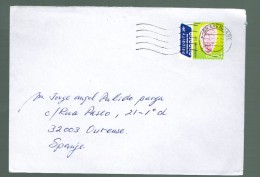 m. Jorge angel Pulido purga
c/Rua Paseo, 21-1º d
32003 Ourense.
Spanje